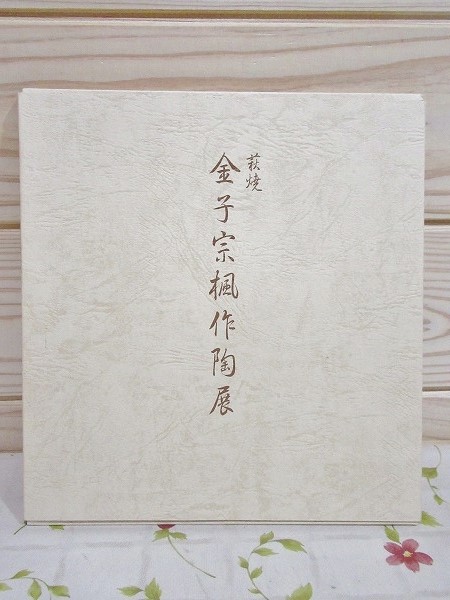 萩焼
金子宗楓作陶展